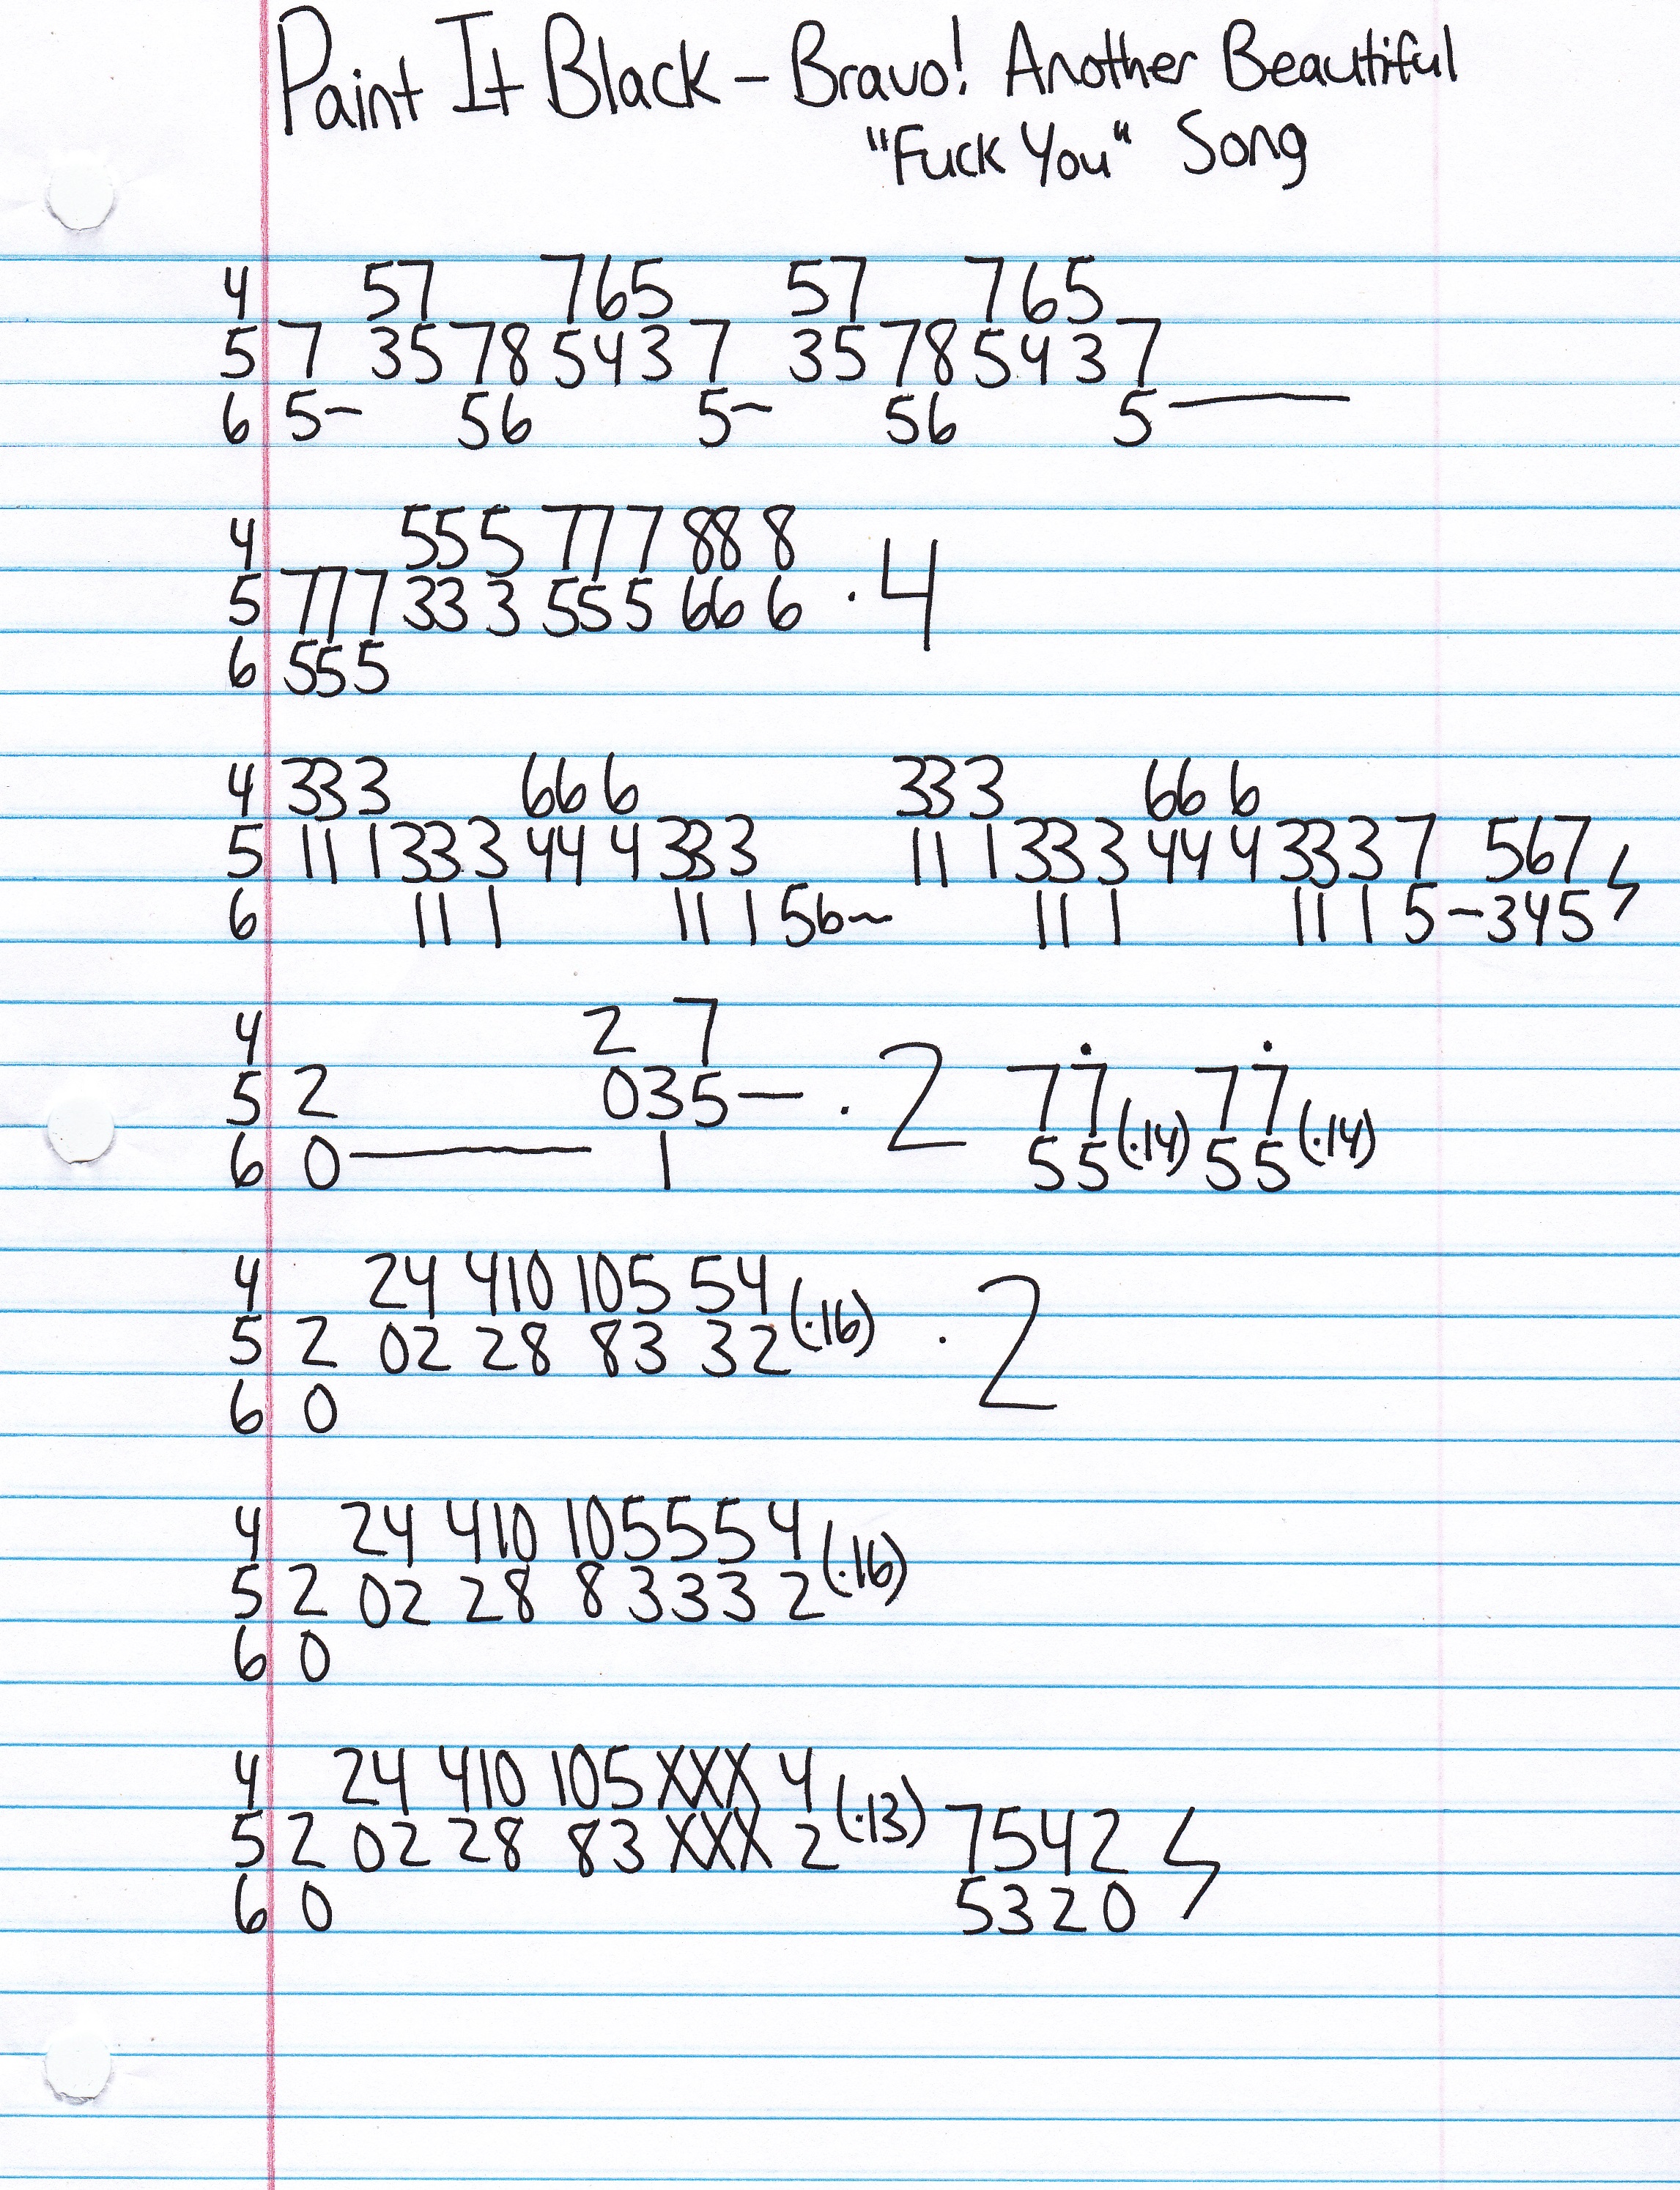 Paint It Black - Bravo! Another Beautiful
"Fuck You" Song
4 57 765 57 765
5 7 35 78 543 7 35 78 543 7
6 5~ 56 5~ 56 5—
4 555 777 888
5 777 333 555 666 · 4
6 555
4 333 666 333 666
5 111 333 444 333 111 333 444 333 7 567
6 111 111 56~ 111 111 5-345
4 2 7
5 2 035— · 2 77 77
6 0— 1 55(·14) 55(·14)
4 24 410 105 54
5 2 02 28 83 32(·16) · 2
6 0
4 24 410 105554
5 2 02 28 8333 2(·16)
6 0
4 24 410 105XXX 4
5 2 02 28 83 XXX 2(·13) 7542
6 0 5320